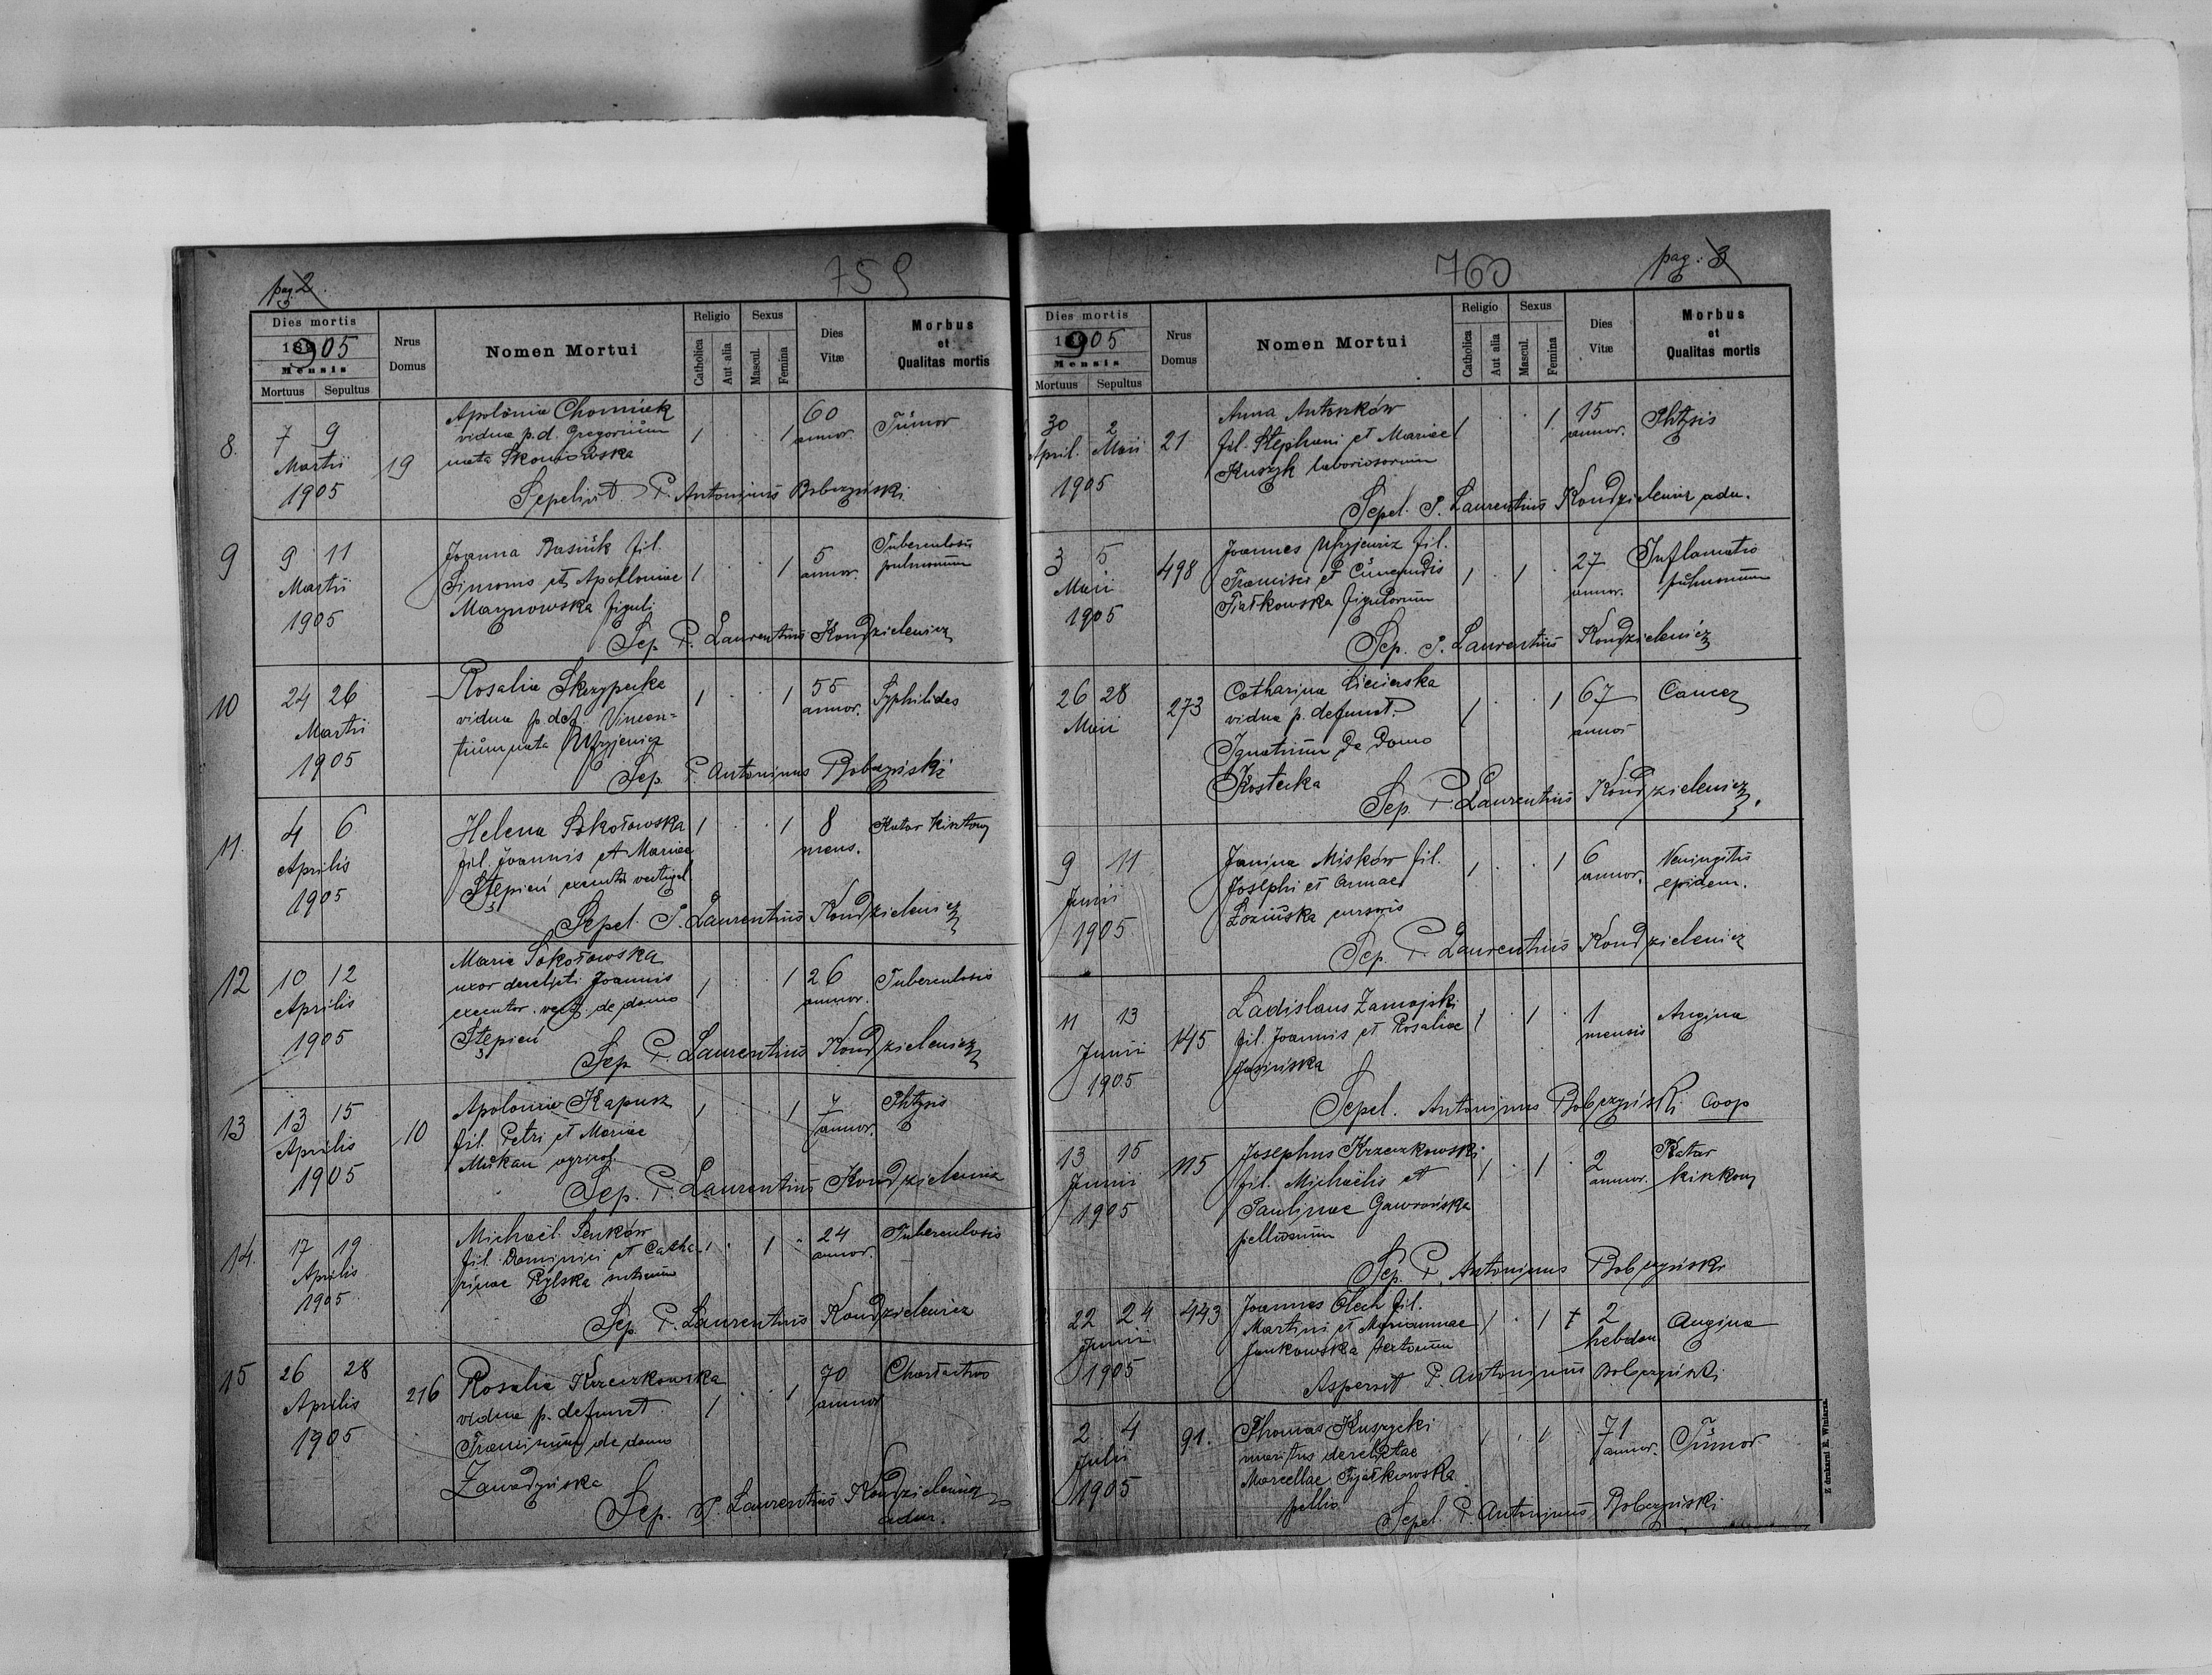 pag. 2
759
Dies mortis
1905
Mensis
Mortuus Sepultus
Nrus Domus
Nomen Mortui
Religio
Catholica
Aut alia
Sexus
Mascul.
Femina
Dies Vitæ
Morbus et Qualitas mortis
8. 7 9 Martii 1905 19
Apolonia Chomiak
vidua p.d. Gregorium
nata
1 . . 1 60 annor. Tumor
Sepelivit P. Antonius Bobczyński
9 9 11 Martii 1905
Joanna Basiuk fil.
Simonis et Apolloniae
Mazurowska figuli
1 . . 1 5 annor. Tuberculosis pulmonum
Sep. P. Laurentius Kondzielewicz
10 24 26 Martii 1905
Rosalia Skrzypecka
vidua p. def. Vincen-
tium nata
1 . . 1 55 annor. Syphilides
Sep. P. Antoninus Bobczyński
11. 4 6 Aprilis 1905
Helena Sokołowska
fil. Joannis et Mariae
Stępień
1 . . 1 8 mens. Katar
Sepel. P. Laurentius Kondzielewicz
12 10 12 Aprilis 1905
Maria Sokołowska
uxor derelicti Joannis
executor. vect. de domo
Stępień
1 . . 1 26 annor. Tuberculosis
Sep. P. Laurentius Kondzielewicz
13 13 15 Aprilis 1905 10
Apolonia Kapusz
fil. Petri et Mariae
Mukan agricol.
1 . . 1 7 annor. Phtysis
Sep. P. Laurentius Kondzielewicz
14. 17 19 Aprilis 1905
Michaël Senków
fil. Dominici et Catha-
rinae Rylska
1 . 1 . 24 annor. Tuberculosis
Sep. P. Laurentius Kondzielewicz
15 26 28 Aprilis 1905 216
Rosalia Krzeczkowska
vidua p. defunct.
de domo
Zawadzińska
1 . . 1 70 annor
Sep. P. Laurentius Kondzielewicz
adm.
760
pag. 3
Dies mortis
1905
Mensis
Mortuus Sepultus
Nrus Domus
Nomen Mortui
Religio
Catholica
Aut alia
Sexus
Mascul.
Femina
Dies Vitæ
Morbus et Qualitas mortis
30 April. 2 Maii 1905 21
Anna Antoszków
fil. Stephani et Mariae
Kuszyk laboriosorum
1 . . 1. 15 annor. Phtysis
Sepel. P. Laurentius Kondzielewicz adm.
3 5 Maii 1905 498
Joannes fil.
Francisci et Cunegundis
Piatkowska figulorum
1 . 1 . 27 annor. Inflamatio pulmonum
Sep. P. Laurentius Kondzielewicz
26 28 Maii 273
Catharina
vidua p. defunct.
Ignatium de domo
Kostecka
1 . . 1 67 annor Cancer
Sep. P. Laurentius Kondzielewicz.
9 11 Junii 1905
Janina Misków fil.
Josephi et Annae
Łozińska cursoris
1 . . 1 6 annor. Meningitis epidem.
Sep. P. Laurentius Kondzielewicz
11 13 Junii 1905 145
Ladislaus Zamojski
fil. Joannis et Rosaliae
Jasińska
1 . 1 . 1 mensis Angina
Sepel. Antoninus Bobczyński Coop
13 15 Junii 1905 115
Josephus Krzeczkowski
fil. Michaëlis et
Paulinae Gawrońska
pellionum
1 . 1 . 2 annor. Katar kiszkowy
Sep. P. Antoninus Bobczyński
22 24 Junii 1905 443
Joannes Olech fil.
Martini et Mariannae
Jankowska
1 . 1 2 hebdom. Angina
Aspersit P. Antoninus Bobczyński
2 4 Julii 1905 91.
Thomas Kuszycki
maritus derelictae
Marcellae Fijałkowska
pellio
1 . 1 . 71 annor. Tumor
Sepel. P. Antoninus Bobczyński
Z drukarni E. Winiarza.